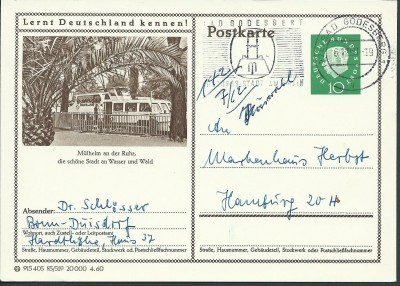 Lernt Deutschland kennen!
Postkarte
BAD GODESBERG
BAD GODESBERG
DEUTSCHE BUNDESPOST
10
Mülheim an der Ruhr,
die schöne Stadt an Wasser und Wald
An
Markenhaus Herbst
Hamburg 20 H
Absender: Dr. Schlösser
Bonn-Duisdorf
Wohnort, auch Zustell- oder Leitpostamt
Hardthöhe, Haus 37
Straße, Hausnummer, Gebäudeteil, Stockwerk od. Postschließfachnummer
Straße, Hausnummer, Gebäudeteil, Stockwerk oder Postschließfachnummer
915 405 85/589 20 000 4.60